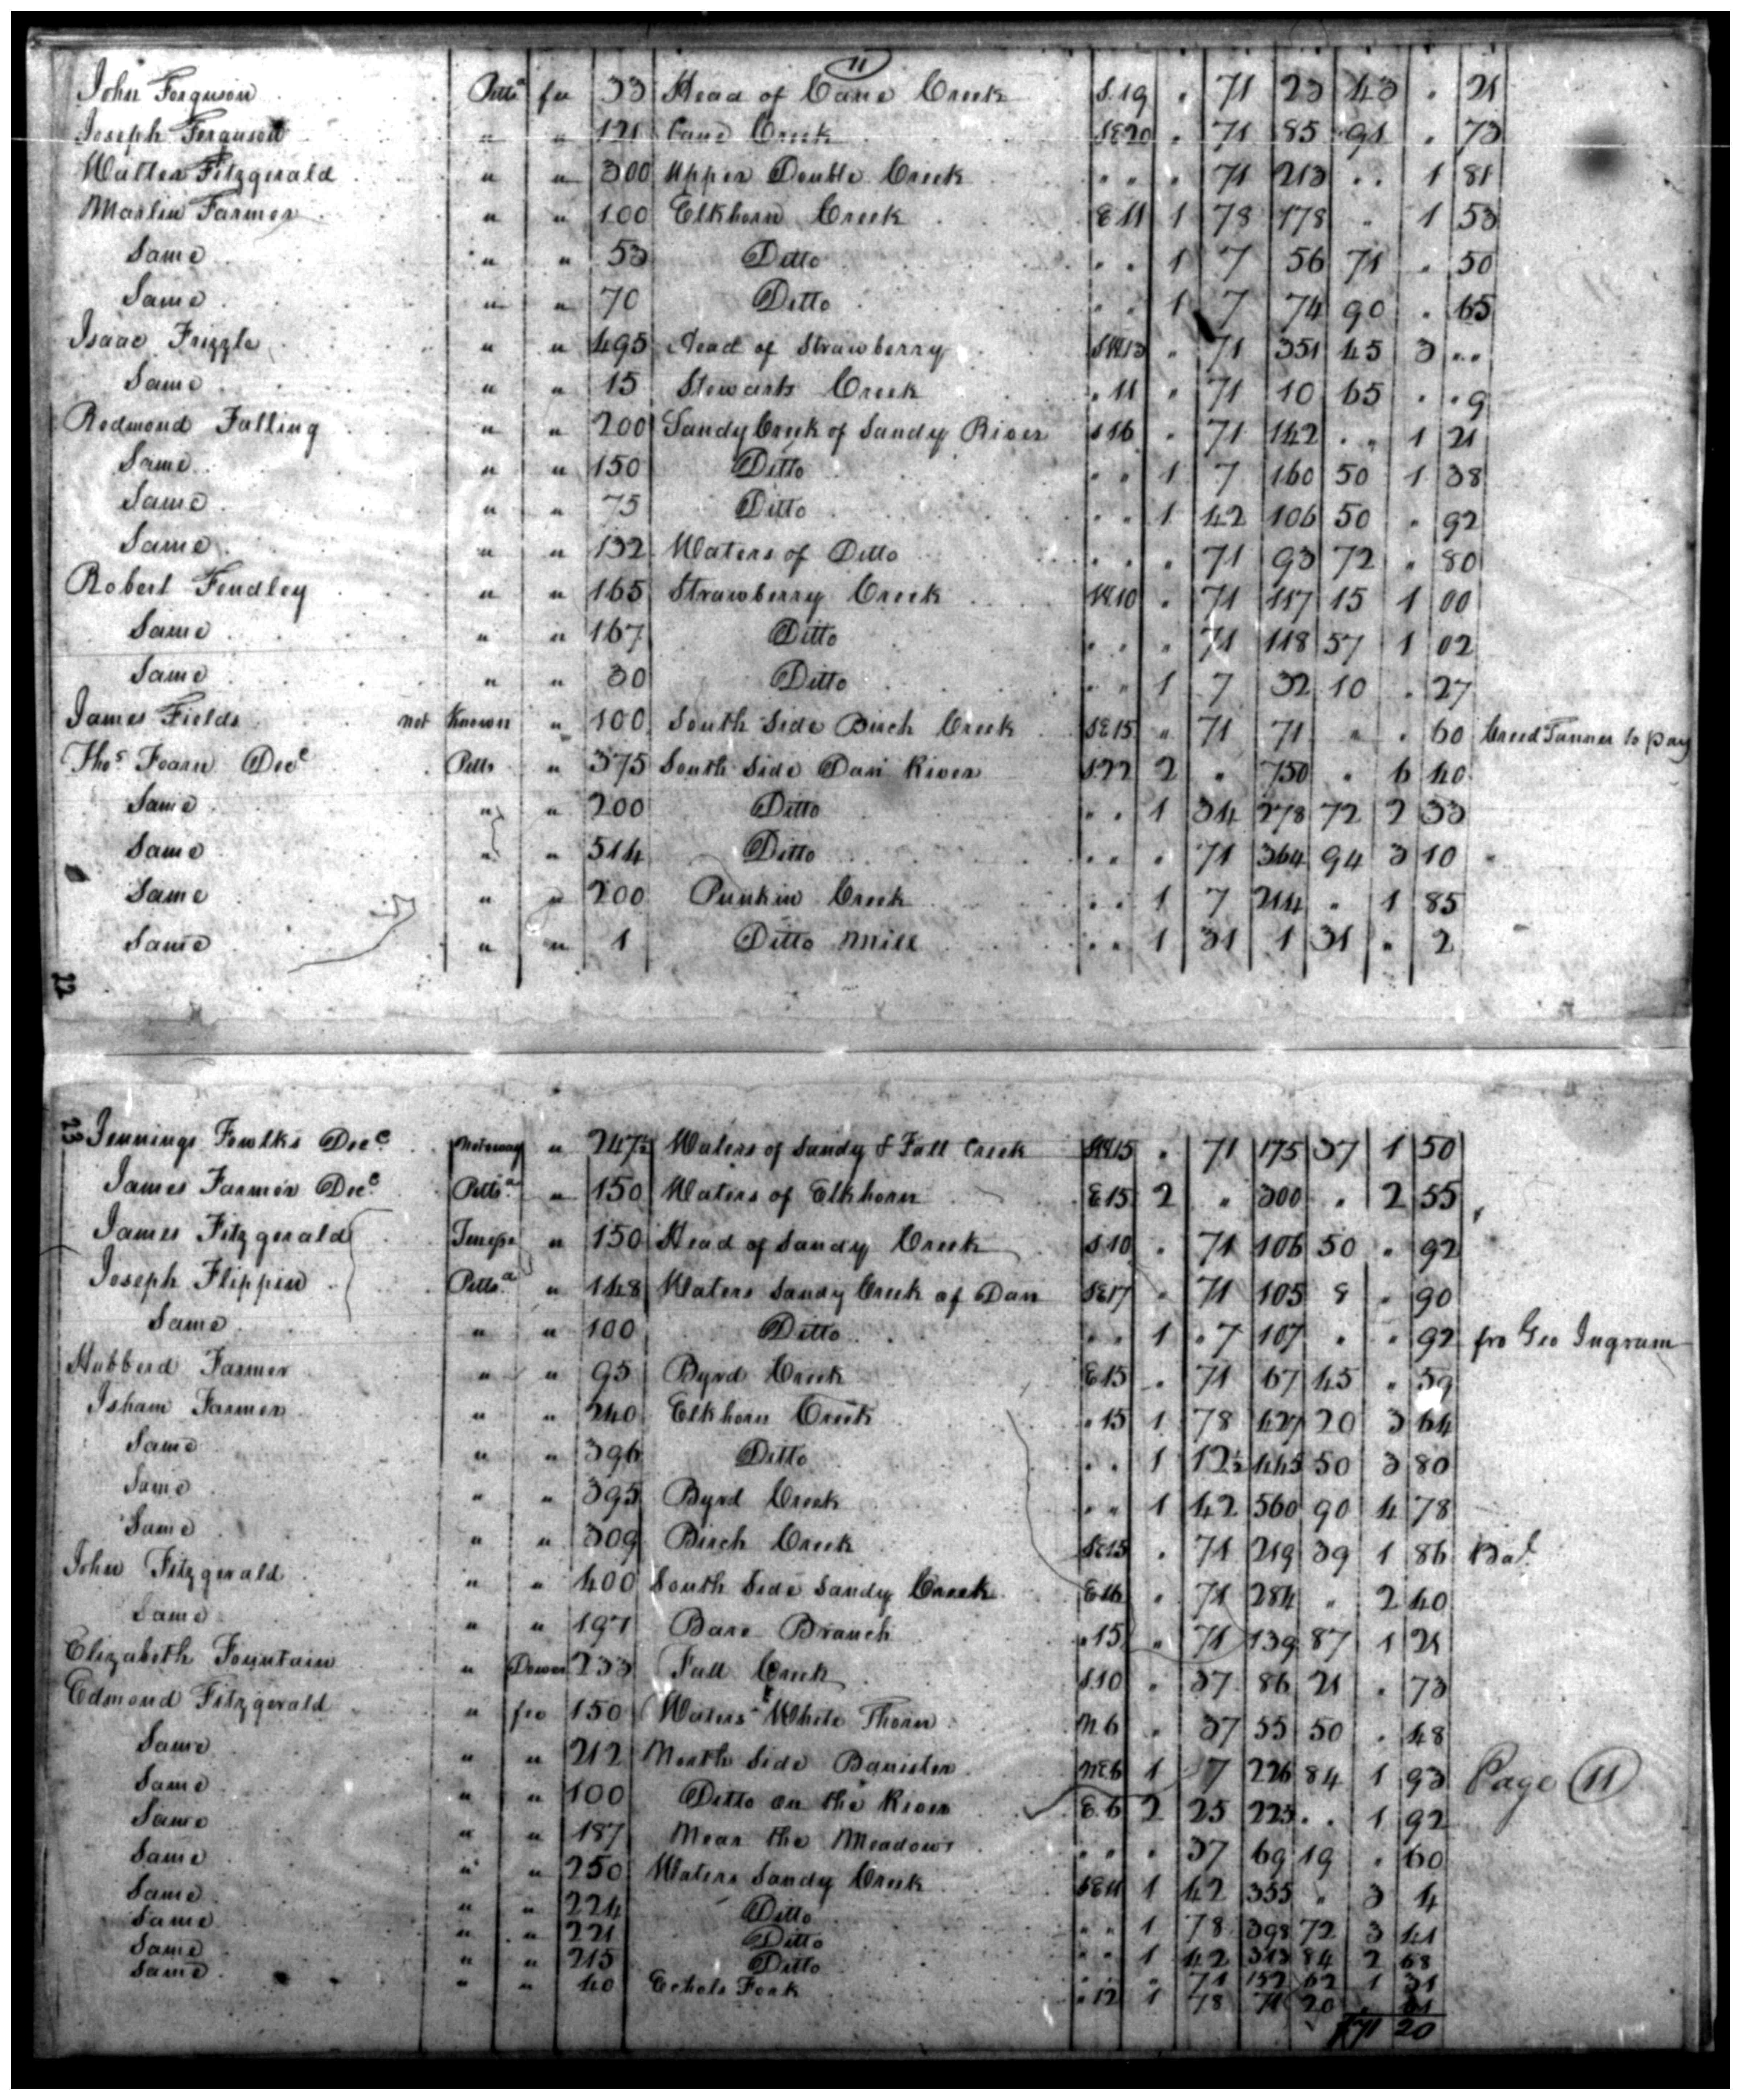 11
John Ferguson Pitts^a fee 33 Head of Cane Creek S.19 " 71 23 43 " 21
Joseph Ferguson " " 121 Cane Creek SE20 " 71 85 91 " 73
Walter Fitzgerald " " 300 Upper Double Creek " " " 71 213 " " 1 81
Marlin Farmer " " 100 Elkhorn Creek E 11 1 78 178 " 1 53
Same " " 53 Ditto " " 1 7 56 71 " 50
Same " " 70 Ditto " " 1 7 74 90 " 65
Isaac Frizzle " " 495 Head of Strawberry SW13 " 71 351 45 3 " "
Same " " 15 Stewarts Creek " 11 " 71 10 65 " " 9
Redmond Falling " " 200 Sandy Creek of Sandy River S 16 " 71 142 " " 1 21
Same " " 150 Ditto " " 1 7 160 50 1 38
Same " " 75 Ditto " " 1 42 106 50 " 92
Same " " 132 Waters of Ditto " " " 71 93 72 " 80
Robert Fendley " " 165 Strawberry Creek SW10 " 71 117 15 1 00
Same " " 167 Ditto " " " 71 118 57 1 02
Same " " 30 Ditto " " 1 7 32 10 " 27
James Fields not Known " 100 South Side Birch Creek SE15 " 71 71 " " 60 Creed Tanner to pay
Tho^s Fearn Dec^e Pitts " 375 South Side Dan River S22 2 " 750 " 6 40
Same " " 200 Ditto " " 1 34 278 72 2 33
Same " " 514 Ditto " " " 71 364 94 3 10
Same " " 200 Punkin Creek " " 1 7 214 " 1 85
Same " " 1 Ditto Mill " " 1 31 1 31 " 2
22
23
Jennings Fowlks Dec^e Notoway " 247½ Waters of Sandy & Fall Creek SW15 " 71 175 37 1 50
James Farmer Dec^e Pitts^a " 150 Waters of Elkhorn E15 2 " 300 " 2 55
James Fitzgerald Tenesse " 150 Head of Sandy Creek S 10 " 71 106 50 " 92
Joseph Flippin Pitts^a " 148 Waters Sandy Creek of Dan SE17 " 71 105 8 " 90
Same " " 100 Ditto " " 1 " 7 107 " " 92 fro Geo Ingram
Hubberd Farmer " " 95 Byrd Creek E15 " 71 67 45 " 59
Isham Farmer " " 240 Elkhorn Creek " 15 1 78 427 20 3 64
Same " " 396 Ditto " " 1 12½ 445 50 3 80
Same " " 395 Byrd Creek " " 1 42 560 90 4 78
Same " " 309 Birch Creek SE15 " 71 219 39 1 86 Bal^e
John Fitzgerald " " 400 South Side Sandy Creek E16 " 71 284 " 2 40
Same " " 197 Bare Branch " 15 " 71 139 87 1 21
Elizabeth Fountain " Dower 233 Fall Creek S10 " 37 86 21 " 73
Edmond Fitzgerald " fee 150 Waters White Thorn N 6 " 37 55 50 " 48
Same " " 212 North Side Banister NE6 1 7 226 84 1 93 Page 11
Same " " 100 Ditto on the River E 6 2 25 225 " " 1 92
Same " " 187 Near the Meadows " " " 37 69 19 " 60
Same " " 250 Waters Sandy Creek SE11 1 42 355 " 3 4
Same " " 224 Ditto " " 1 78 398 72 3 41
Same " " 221 Ditto " " 1 42 313 84 2 68
Same " " 215 Ditto " " " 71 152 62 1 31
Same " " 40 Echols Fork " 12 1 78 71 20 " 61
71 20